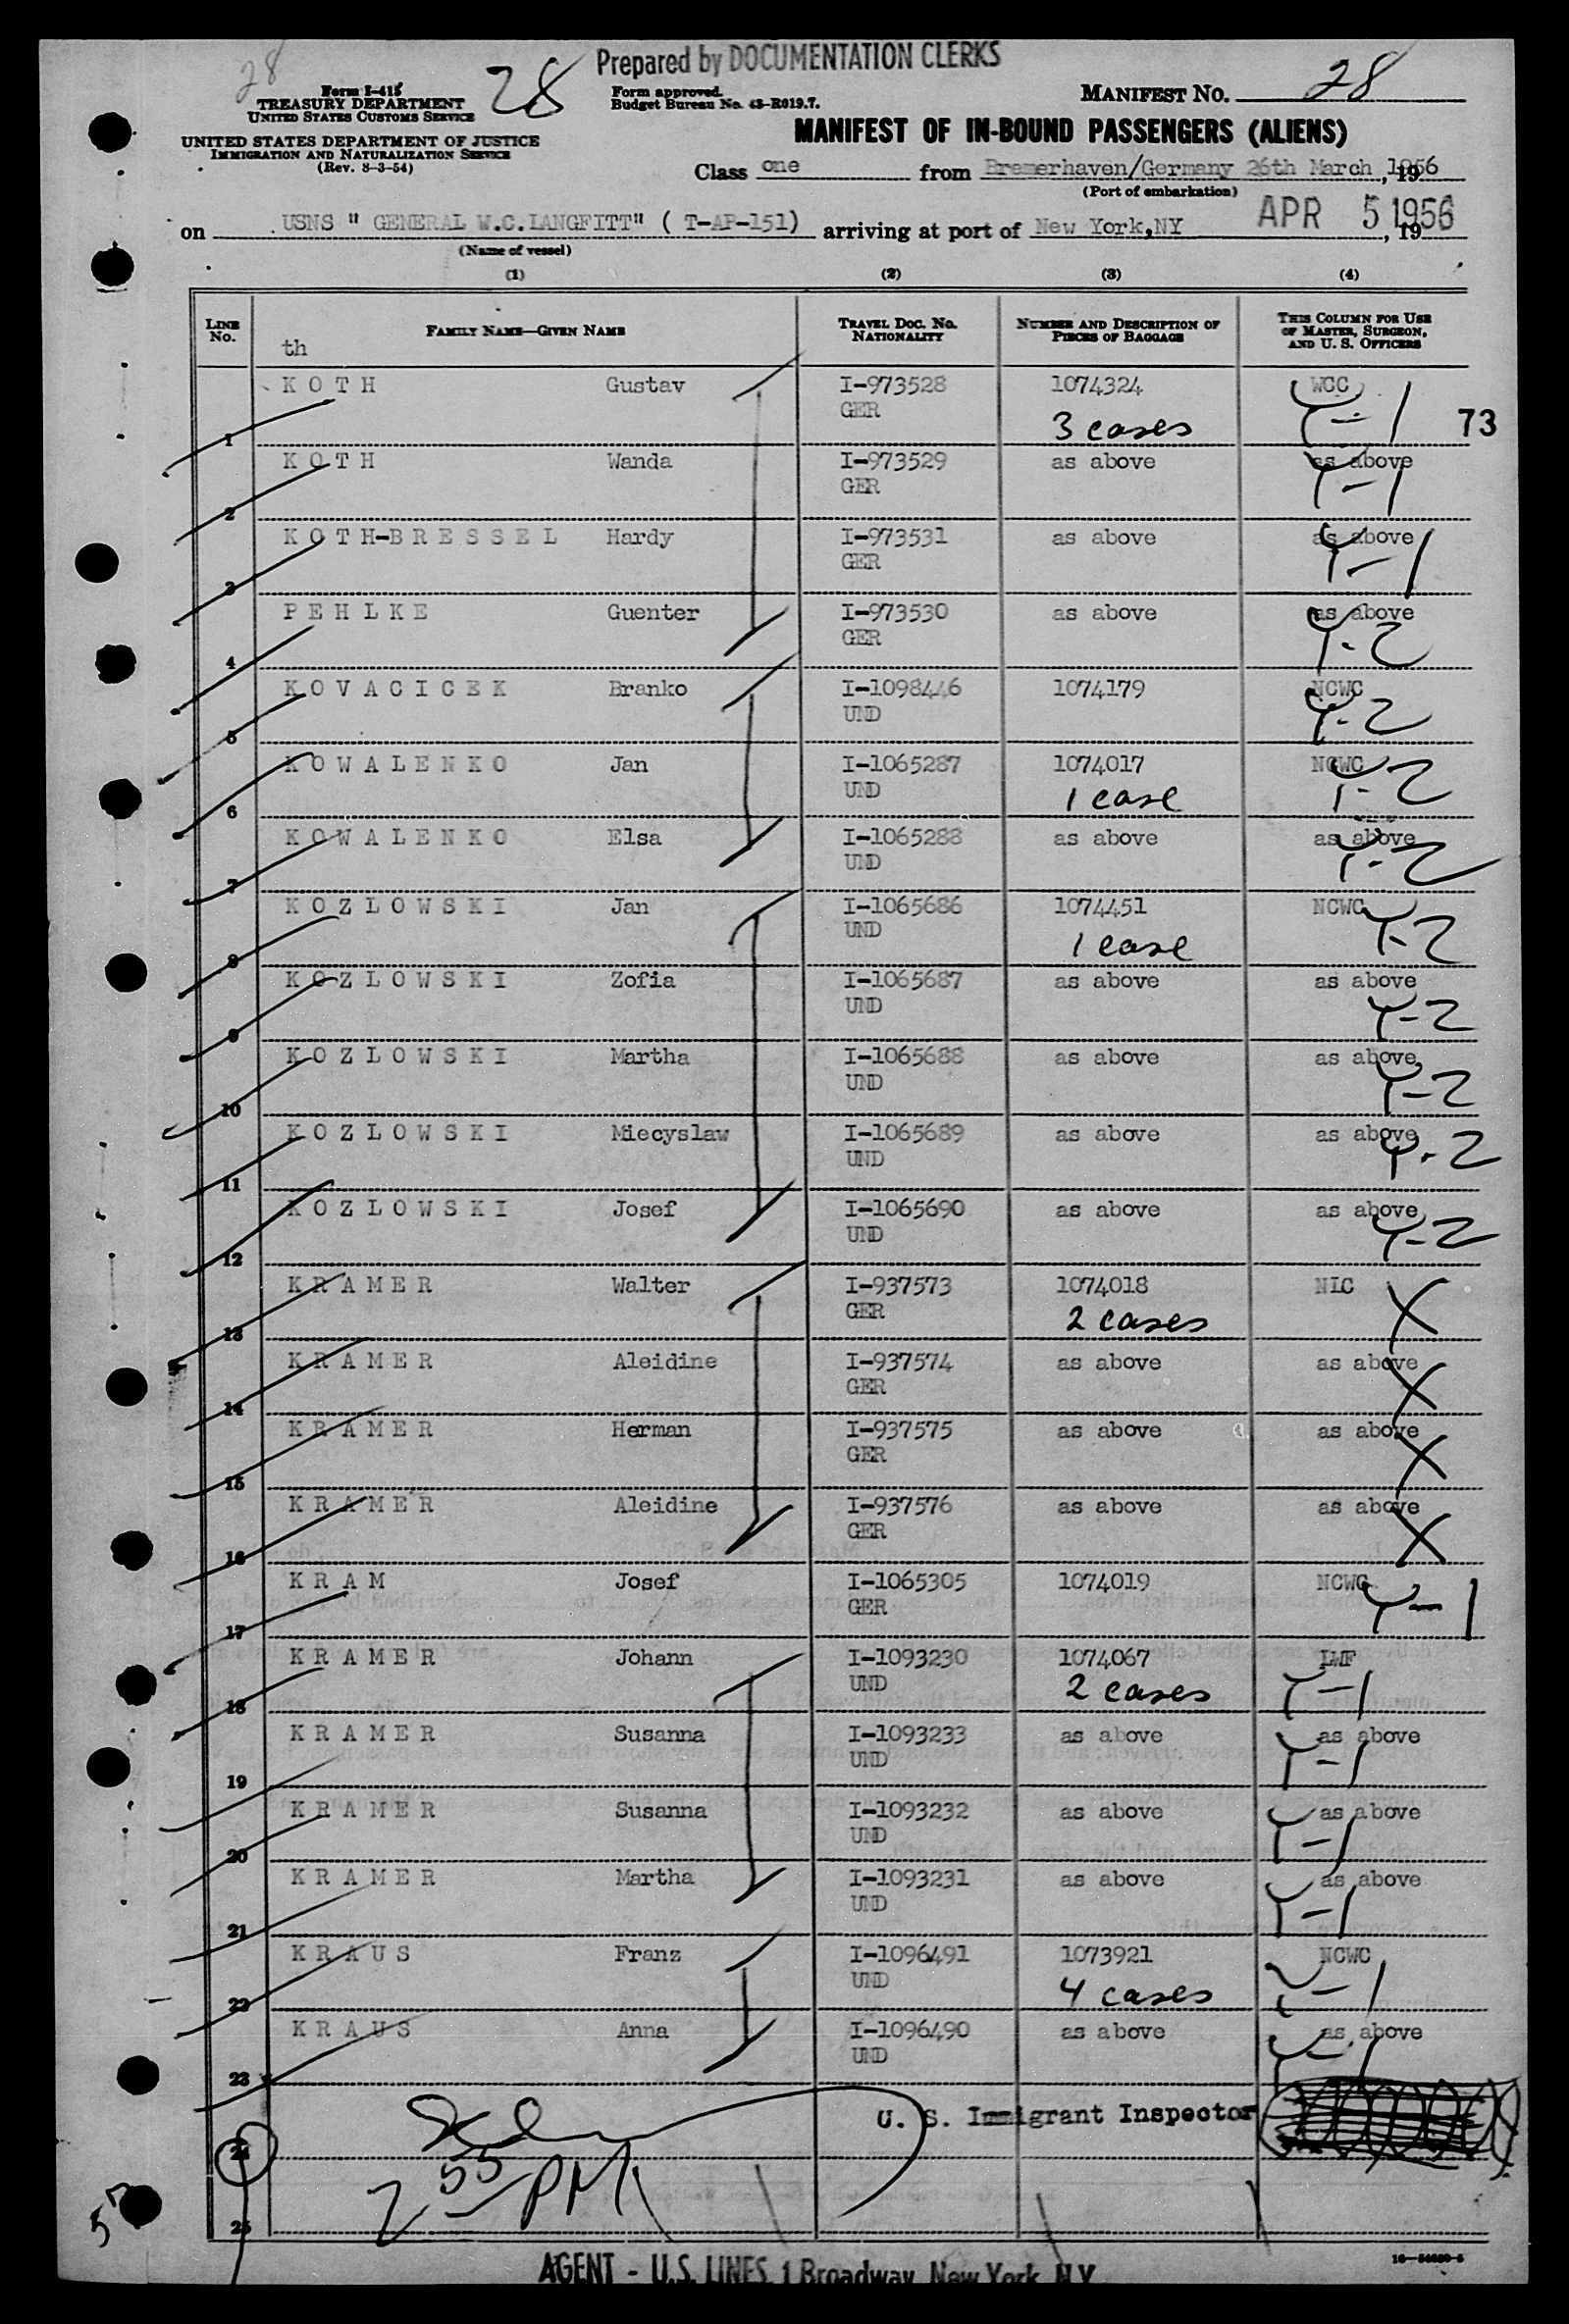 Prepared by DOCUMENTATION CLERKS
28
28
Form I-415
TREASURY DEPARTMENT
UNITED STATES CUSTOMS SERVICE
UNITED STATES DEPARTMENT OF JUSTICE
IMMIGRATION AND NATURALIZATION SERVICE
(Rev. 8-3-54)
Form approved.
Budget Bureau No. 43-R019.7.
MANIFEST NO. 28
MANIFEST OF IN-BOUND PASSENGERS (ALIENS)
Class one from Bremerhaven/Germany 26th March, 1956
(Port of embarkation)
on USNS " GENERAL W.C.LANGFITT" ( T-AP-151) arriving at port of New York,NY APR 5 1956, 19
(Name of vessel)
(1) (2) (3) (4)
LINE No. FAMILY NAME—GIVEN NAME TRAVEL DOC. NO. NATIONALITY NUMBER AND DESCRIPTION OF PIECES OF BAGGAGE THIS COLUMN FOR USE OF MASTER, SURGEON, AND U. S. OFFICERS
th
1 K O T H Gustav I-973528 GER 1074324 3 cases WCC Y-1 73
2 K O T H Wanda I-973529 GER as above as above Y-1
3 K O T H-B R E S S E L Hardy I-973531 GER as above as above Y-1
4 P E H L K E Guenter I-973530 GER as above as above Y-2
5 K O V A C I C E K Branko I-1098446 UND 1074179 NCWC Y-2
6 K O W A L E N K O Jan I-1065287 UND 1074017 1 case NCWC Y-2
7 K O W A L E N K O Elsa I-1065288 UND as above as above Y-2
8 K O Z L O W S K I Jan I-1065686 UND 1074451 1 case NCWC Y-2
9 K O Z L O W S K I Zofia I-1065687 UND as above as above Y-2
10 K O Z L O W S K I Martha I-1065688 UND as above as above Y-2
11 K O Z L O W S K I Miecyslaw I-1065689 UND as above as above Y-2
12 K O Z L O W S K I Josef I-1065690 UND as above as above Y-2
13 K R A M E R Walter I-937573 GER 1074018 2 cases NLC X
14 K R A M E R Aleidine I-937574 GER as above as above X
15 K R A M E R Herman I-937575 GER as above as above X
16 K R A M E R Aleidine I-937576 GER as above as above X
17 K R A M Josef I-1065305 GER 1074019 NCWC Y-1
18 K R A M E R Johann I-1093230 UND 1074067 2 cases LWF Y-1
19 K R A M E R Susanna I-1093233 UND as above as above Y-1
20 K R A M E R Susanna I-1093232 UND as above as above Y-1
21 K R A M E R Martha I-1093231 UND as above as above Y-1
22 K R A U S Franz I-1096491 UND 1073921 4 cases NCWC Y-1
23 K R A U S Anna I-1096490 UND as above as above Y-1
U. S. Immigrant Inspector
24
2 55 PM
25
AGENT - U.S. LINES, 1 Broadway, New York, N.Y.